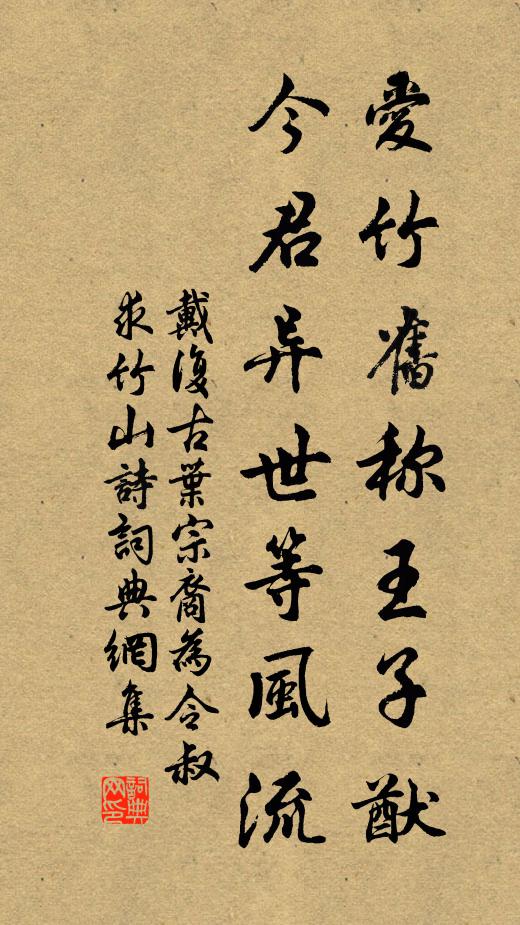 愛竹舊称王子猷
今君异世等風流
戴復古葉宗裔為令叔
求竹山詩詞典網集
詞典
网印